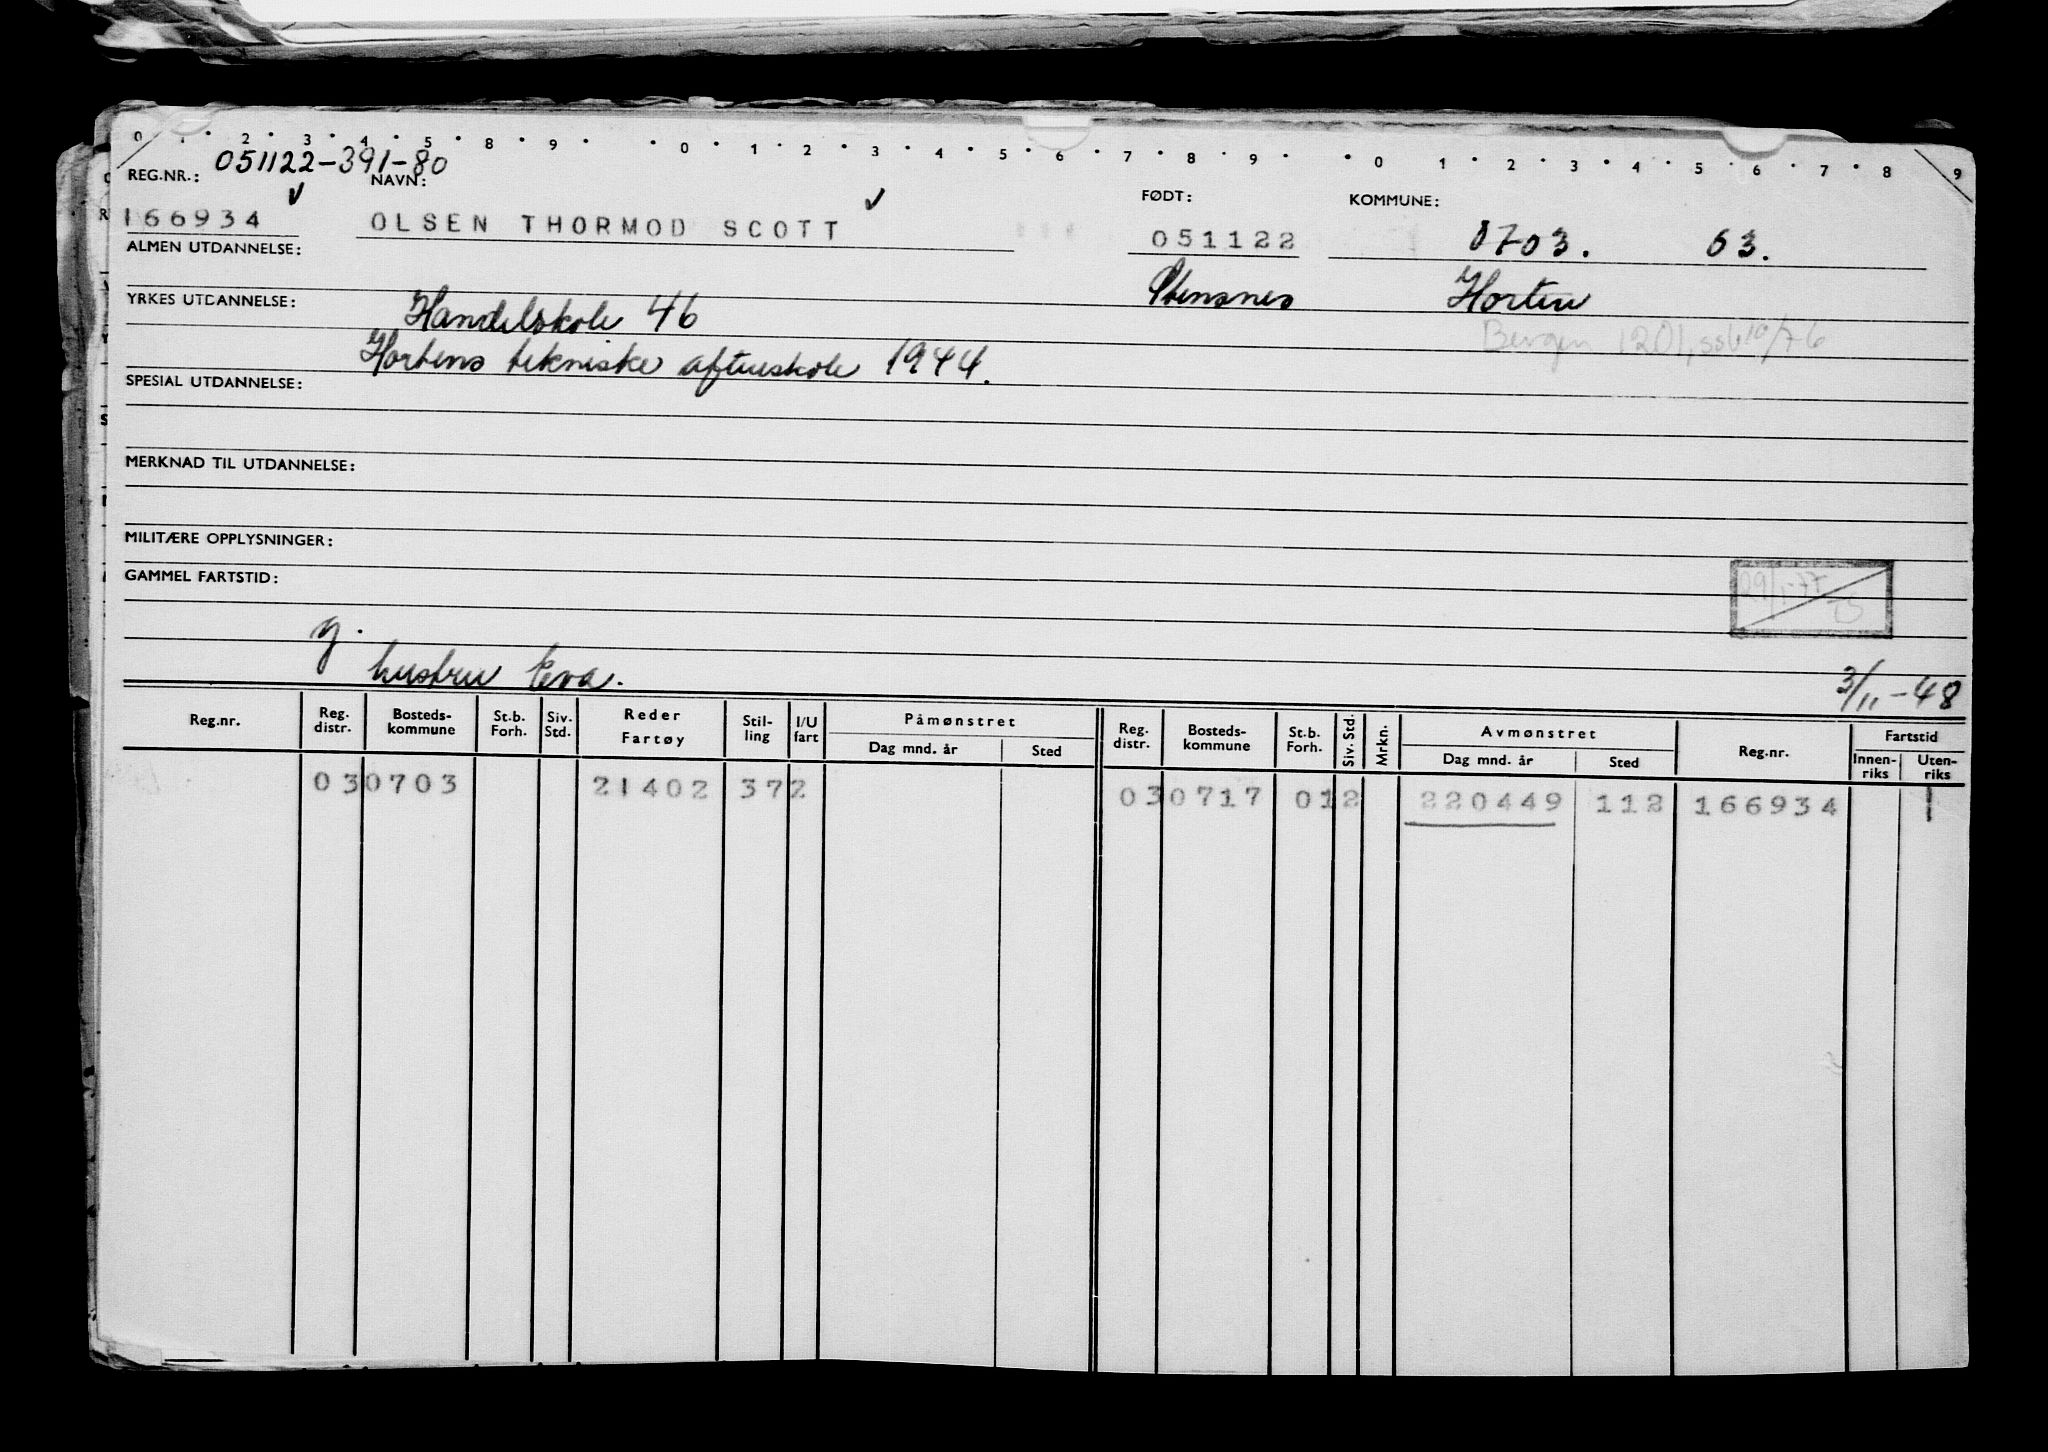 0 1 2 3 4 5 8 9 0 1 2 3 4 5 6 7 8 9 0 1 2 3 4 5 6 7 8 9
051122-391-80
REG.NR.: NAVN: FØDT: KOMMUNE:
166934 OLSEN THORMOD SCOTT 051122 0703. 03.
ALMEN UTDANNELSE:
Stensnes Horten
YRKES UTDANNELSE: Handelskole 46
Bergen 1201, 10/76
Hortens tekniske aftenskole 1944.
SPESIAL UTDANNELSE:
MERKNAD TIL UTDANNELSE:
MILITÆRE OPPLYSNINGER:
GAMMEL FARTSTID:
29/1-77
g.
hustru Eva.
3/11-48
Reg.nr. Reg. distr. Bosteds-kommune St.b. Forh. Siv. Std. Reder Fartøy Stil-ling I/U fart Påmønstret Dag mnd. år Sted Reg. distr. Bosteds-kommune St.b. Forh. Siv. Std. Mrkn. Avmønstret Dag mnd. år Sted Reg.nr. Fartstid Innen-riks Uten-riks
03 0703 21402 372 03 0717 01 2 220449 112 166934 1